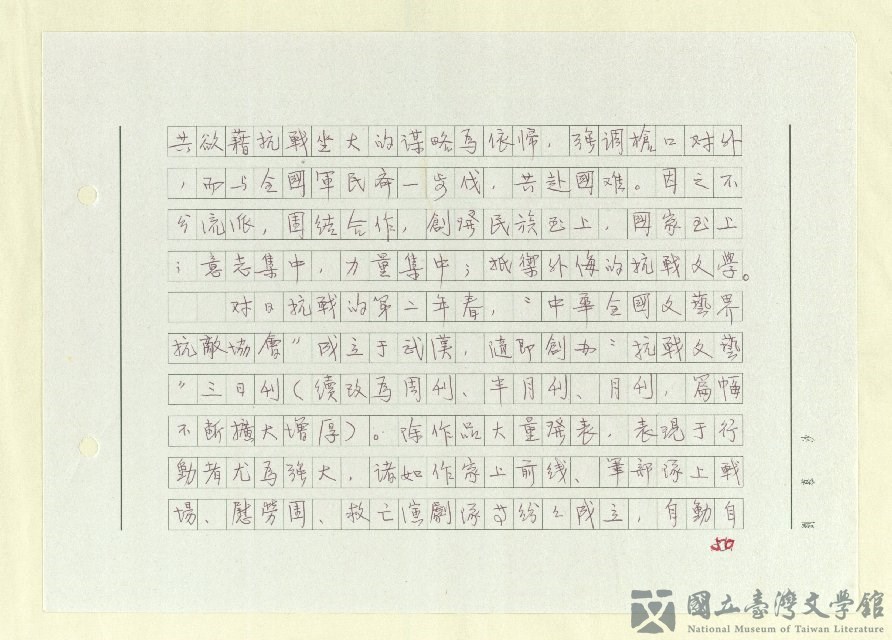 共欲藉抗戰坐大的谋略為依帰，强调槍口对外
，而与全國軍民齊一步伐，共赴國难。因之不
分流派，團结合作，創發民族至上，國家至上
；意志集中，力量集中；抵禦外侮的抗戰文學。
对日抗戰的第二年春，“中華全國文藝界
抗敵協會”成立于武漢，随即創办“抗戰文藝
”三日刊（續改為周刊、半月刊、月刊，篇幅
不断擴大增厚）。除作品大量發表，表現于行
動者尤為强大，諸如作家上前线、筆部隊上戰
場、慰勞團、救亡演劇隊等纷纷成立，自動自
國立臺灣文學館
National Museum of Taiwan Literature